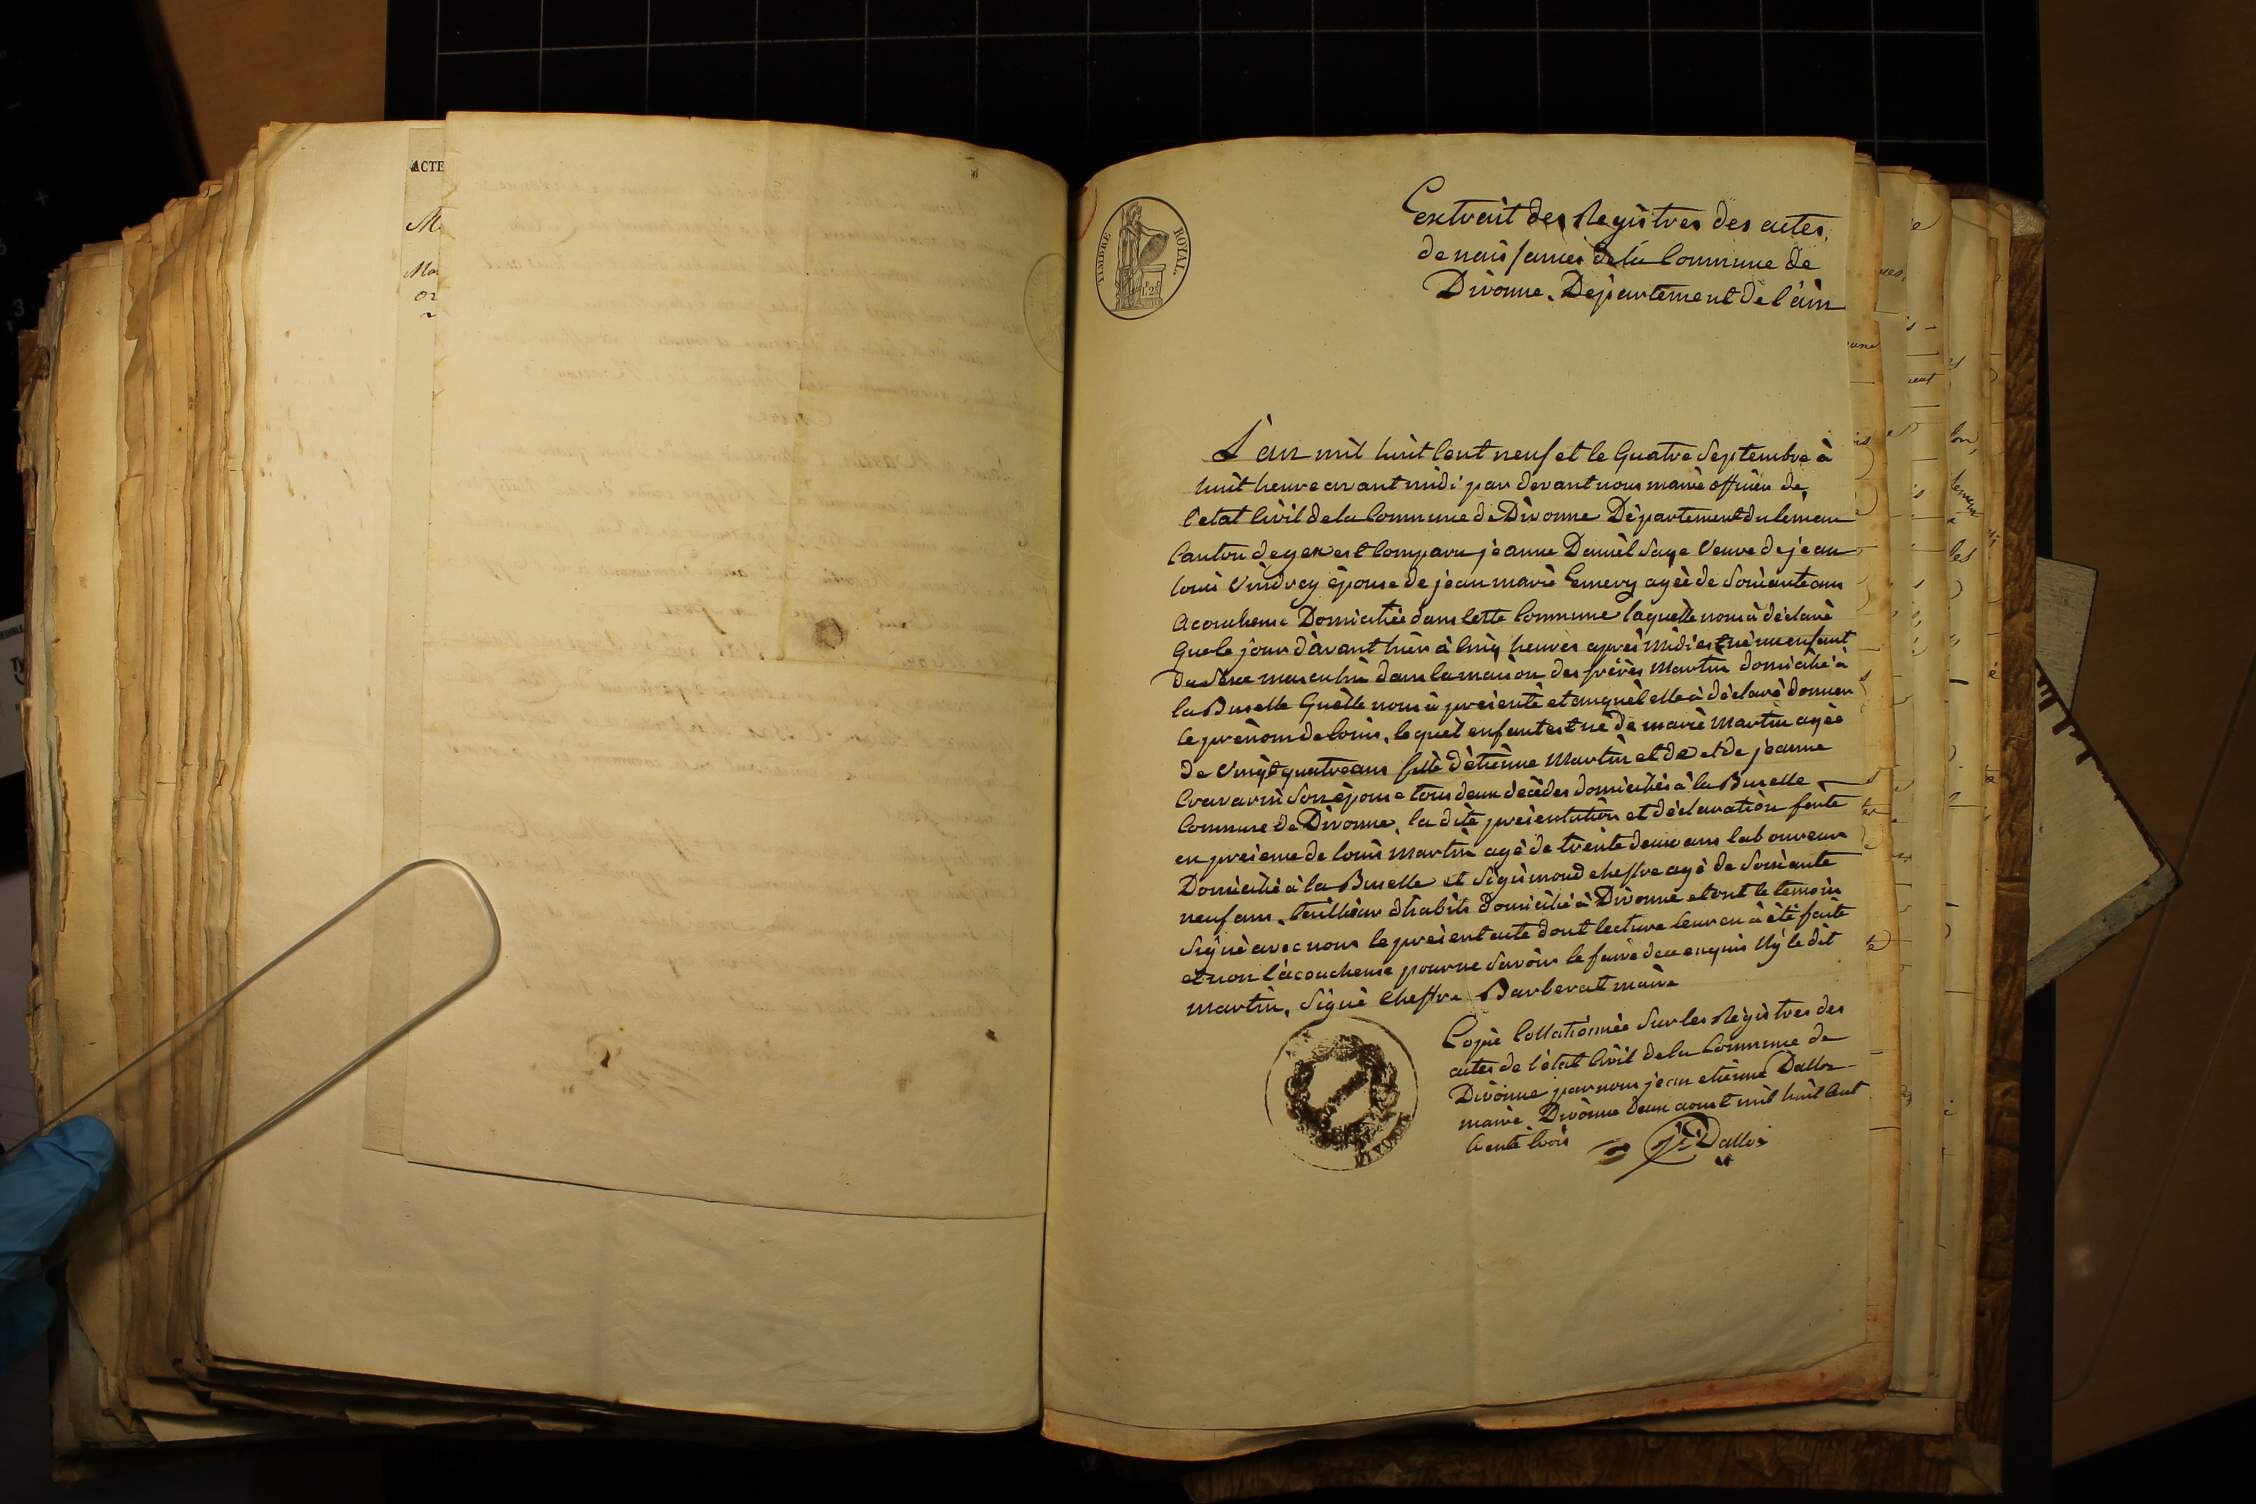 ACTE
TIMBRE ROYAL
Extrait des Registres des actes,
de naissances de la Commune de
Divonne, Département de l'ain
L'an mil huit Cent neuf et le Quatre Septembre à
huit heure avant midi par devant nous maire officier de
l'etat Civil de la Commune de Divonne Département du leman
Canton de gex est Comparu jeanne Daniel Saye Veuve de jean
louis Vindrey épouse de jean marie Emery agée de Soixante ans
acoucheuse Domiciliée dans Cette Commune laquelle nous à déclaré
Que le jour d'avant hier à Cinq heures après midi est né un enfant
du Sexe masculin dans la maison des frères Martin domicilié à
la Buselle Quelle nous à présenté et auquel elle à déclaré donner
le prénom de louis, lequel enfant est né de marie Martin agée
de Vingt quatre ans fille d'étienne Martin et de et de jeanne
Cravarin Son épouse tous deux décédés domiciliés à la Buselle
Commune de Divonne, la dite présentation et déclaration faite
en présence de louis Martin agé de trente deux ans laboureur
Domicilié à la Buselle et Sigismond cheffre agé de Soixante
neuf ans, tailleur d'habits domicilié à Divonne et ont le temoin
Signé avec nous le présent acte dont lecture leur en à été faite
et non l'acoucheuse pour ne Savoir le faire de ce enquis Uy le dit
martin, Signé Cheffre Barberat maire
Copie Collationnée Sur les Régistres des
actes de l'état Civil de la Commune de
Divonne par nous jean etienne Dalloz
maire Divonne Deux aoust mil huit Cent
trente trois JE Dalloz
DIVONNE